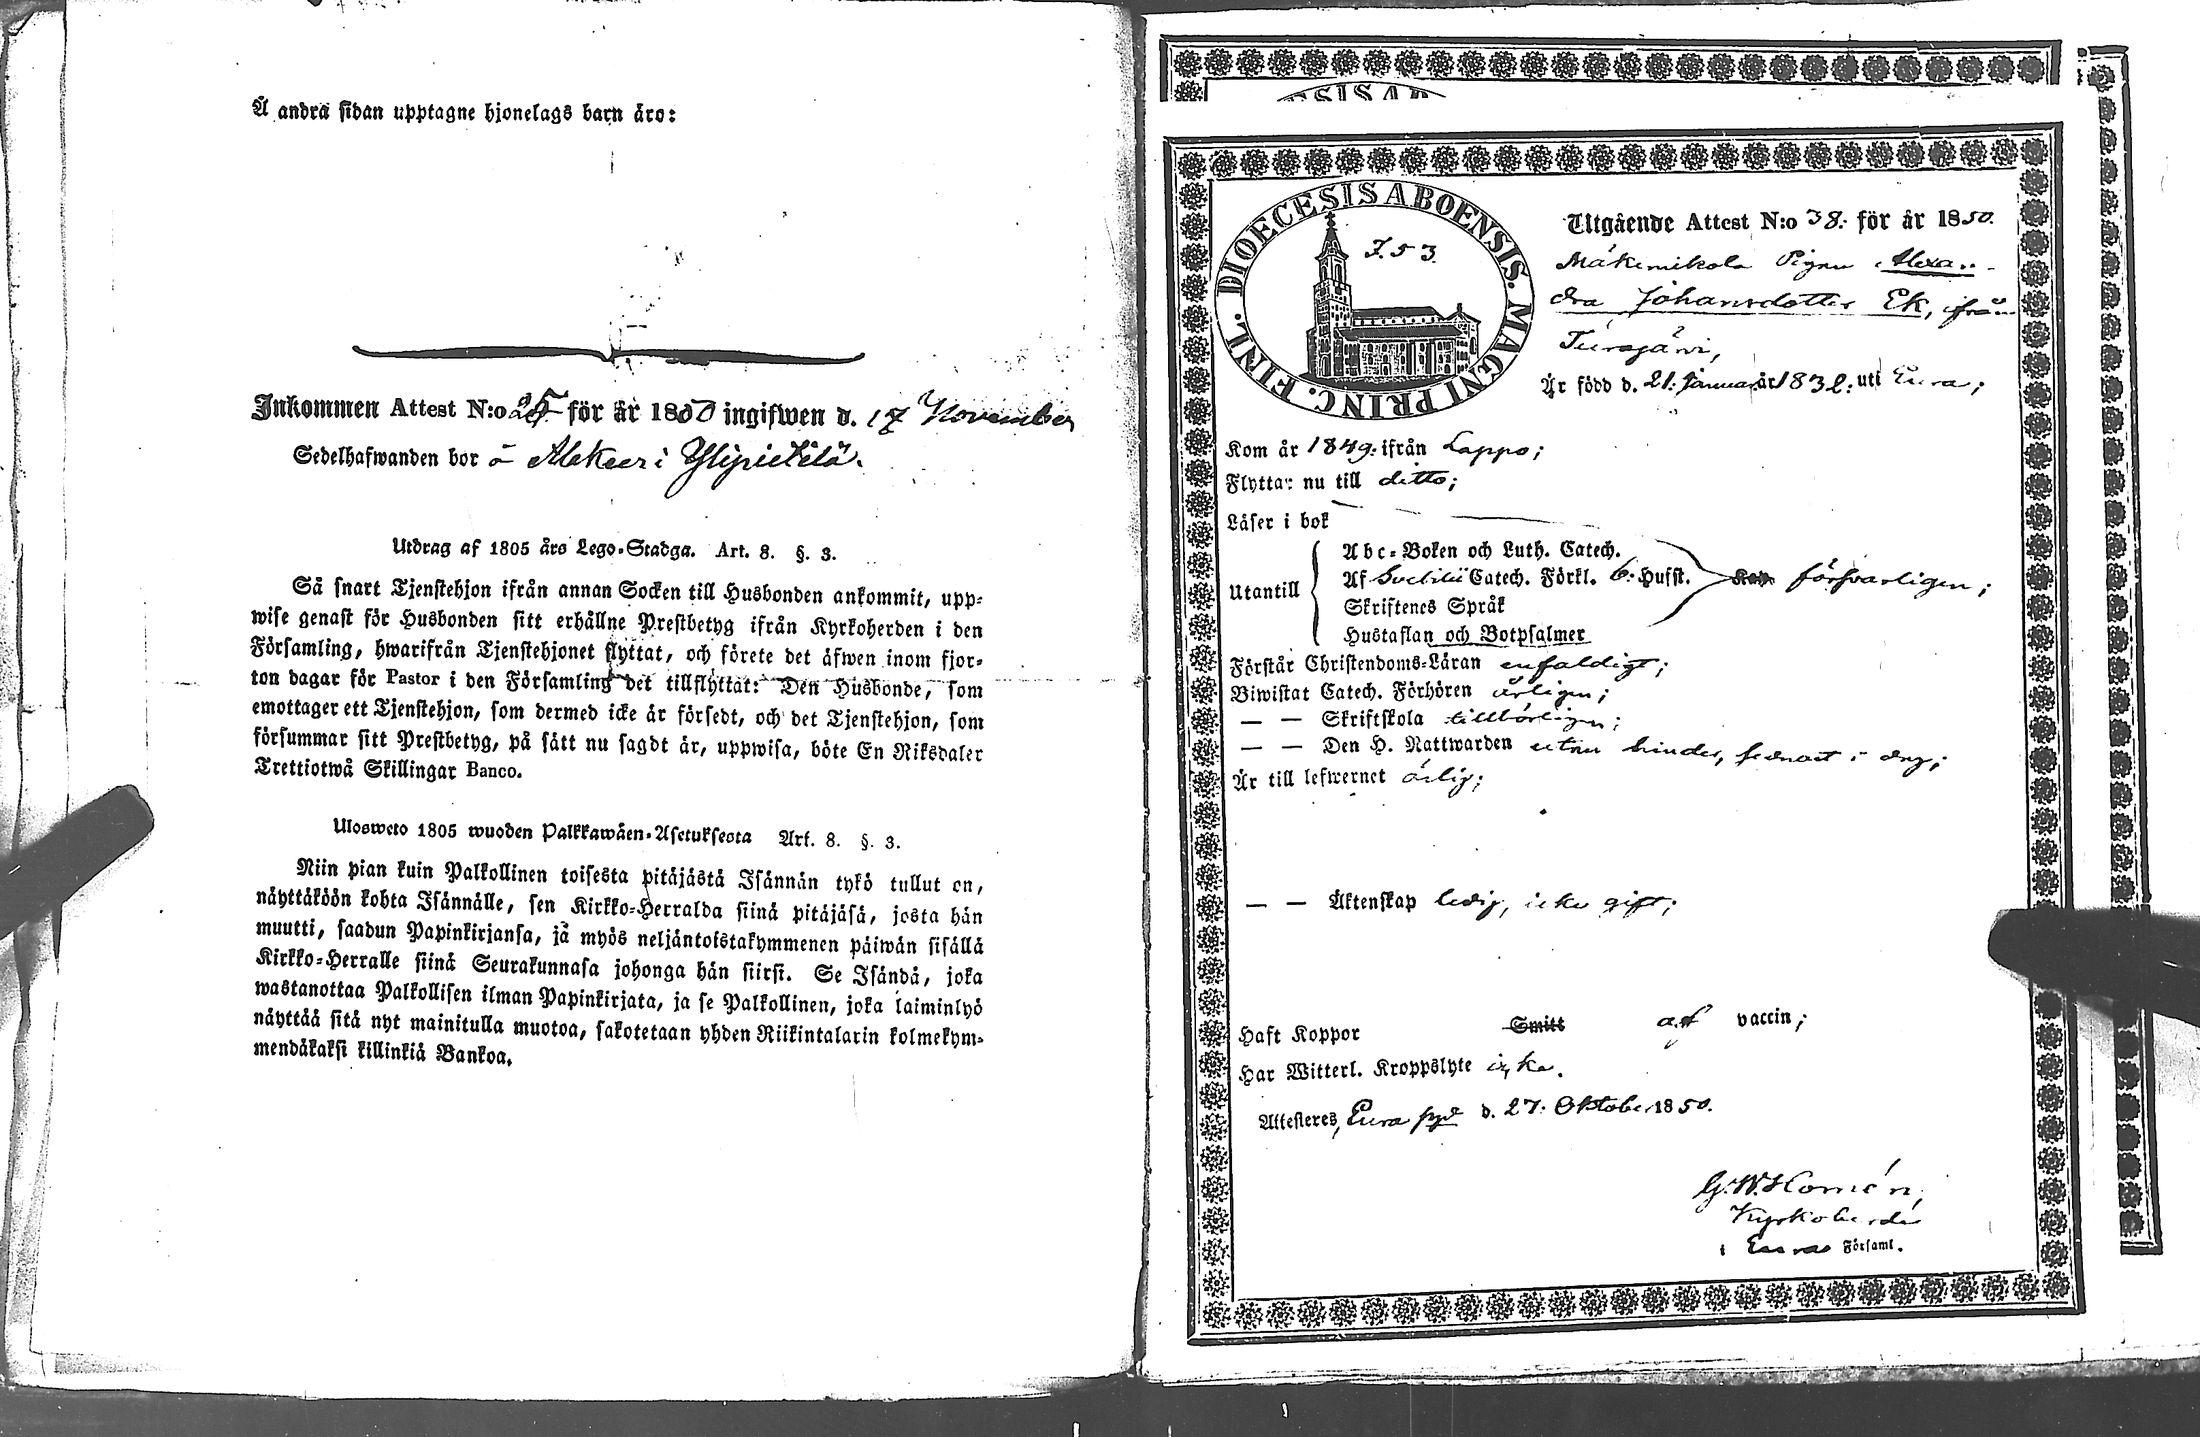 Å andra sidan upptagne hjonelags barn äro:
Inkommen Attest N:o 25 för år 1850 ingifwen d. 17 November
Sedelhafwanden bor å i Ylipietilä.
Utdrag af 1805 års Lego-Stadga. Art. 8. §. 3.
Så snart Tjenstehjon ifrån annan Socken till Husbonden ankommit, upp-
wise genast för Husbonden sitt erhållne Prestbetyg ifrån Kyrkoherden i den
Församling, hwarifrån Tjenstehjonet flyttat, och förete det äfwen inom fjor-
ton dagar för Pastor i den Församling det tillflyttat: Den Husbonde, som
emottager ett Tjenstehjon, som dermed icke är försedt, och det Tjenstehjon, som
försummar sitt Prestbetyg, på sätt nu sagdt är, uppwisa, böte En Riksdaler
Trettiotwå Skillingar Banco.
Ulosweto 1805 wuoden Palkkawäen-Asetuksesta Art. 8. §. 3.
Niin pian kuin Palkollinen toisesta pitäjästä Isännän tykö tullut on,
näyttäköön kohta Isännälle, sen Kirkko-Herralda siinä pitäjäsä, josta hän
muutti, saadun Papinkirjansa, ja myös neljäntoistakymmenen päiwän sisällä
Kirkko-Herralle siinä Seurakunnasa johonga hän siirsi. Se Isändä, joka
wastanottaa Palkollisen ilman Papinkirjata, ja se Palkollinen, joka laiminlyö
näyttää sitä nyt mainitulla muotoa, sakotetaan yhden Riikintalarin kolmekym-
mendäkaksi killinkiä Bankoa.
ESIS AB
DIOECESIS ABOENSIS. MAGNI PRINC. FINL.
F. 53.
Utgående Attest N:o 38. för år 1850.
Mäkimikola Pigan Alexan-
dra Johansdotter Ek, ifrån
Turajärvi,
Är född d. 21. Januari år 1832. uti Eura;
Kom år 1849. ifrån Lappo;
Flyttar nu till ditto;
Läser i bok
Utantill
Abc-Boken och Luth. Catech.
Af Svebilii Catech. Förkl. 6. Hufst. Kan försvarligen;
Skriftenes Språk
Hustaflan och Botpsalmer
Förstår Christendoms-Läran enfaldigt;
Biwistat Catech. Förhören årligen;
— — Skriftskola tillbörligen;
— — Den H. Nattwarden utan hinder, sednast i dag;
Är till lefwernet ärlig;
— — Äktenskap ledig, icke gift;
Haft Koppor Smitt af vaccin;
Har Witterl. Kroppslyte icke.
Attesteres, Eura pgd d. 27. Oktober 1850.
G. W. Homén,
Kyrkoherde
i Eura Församl.